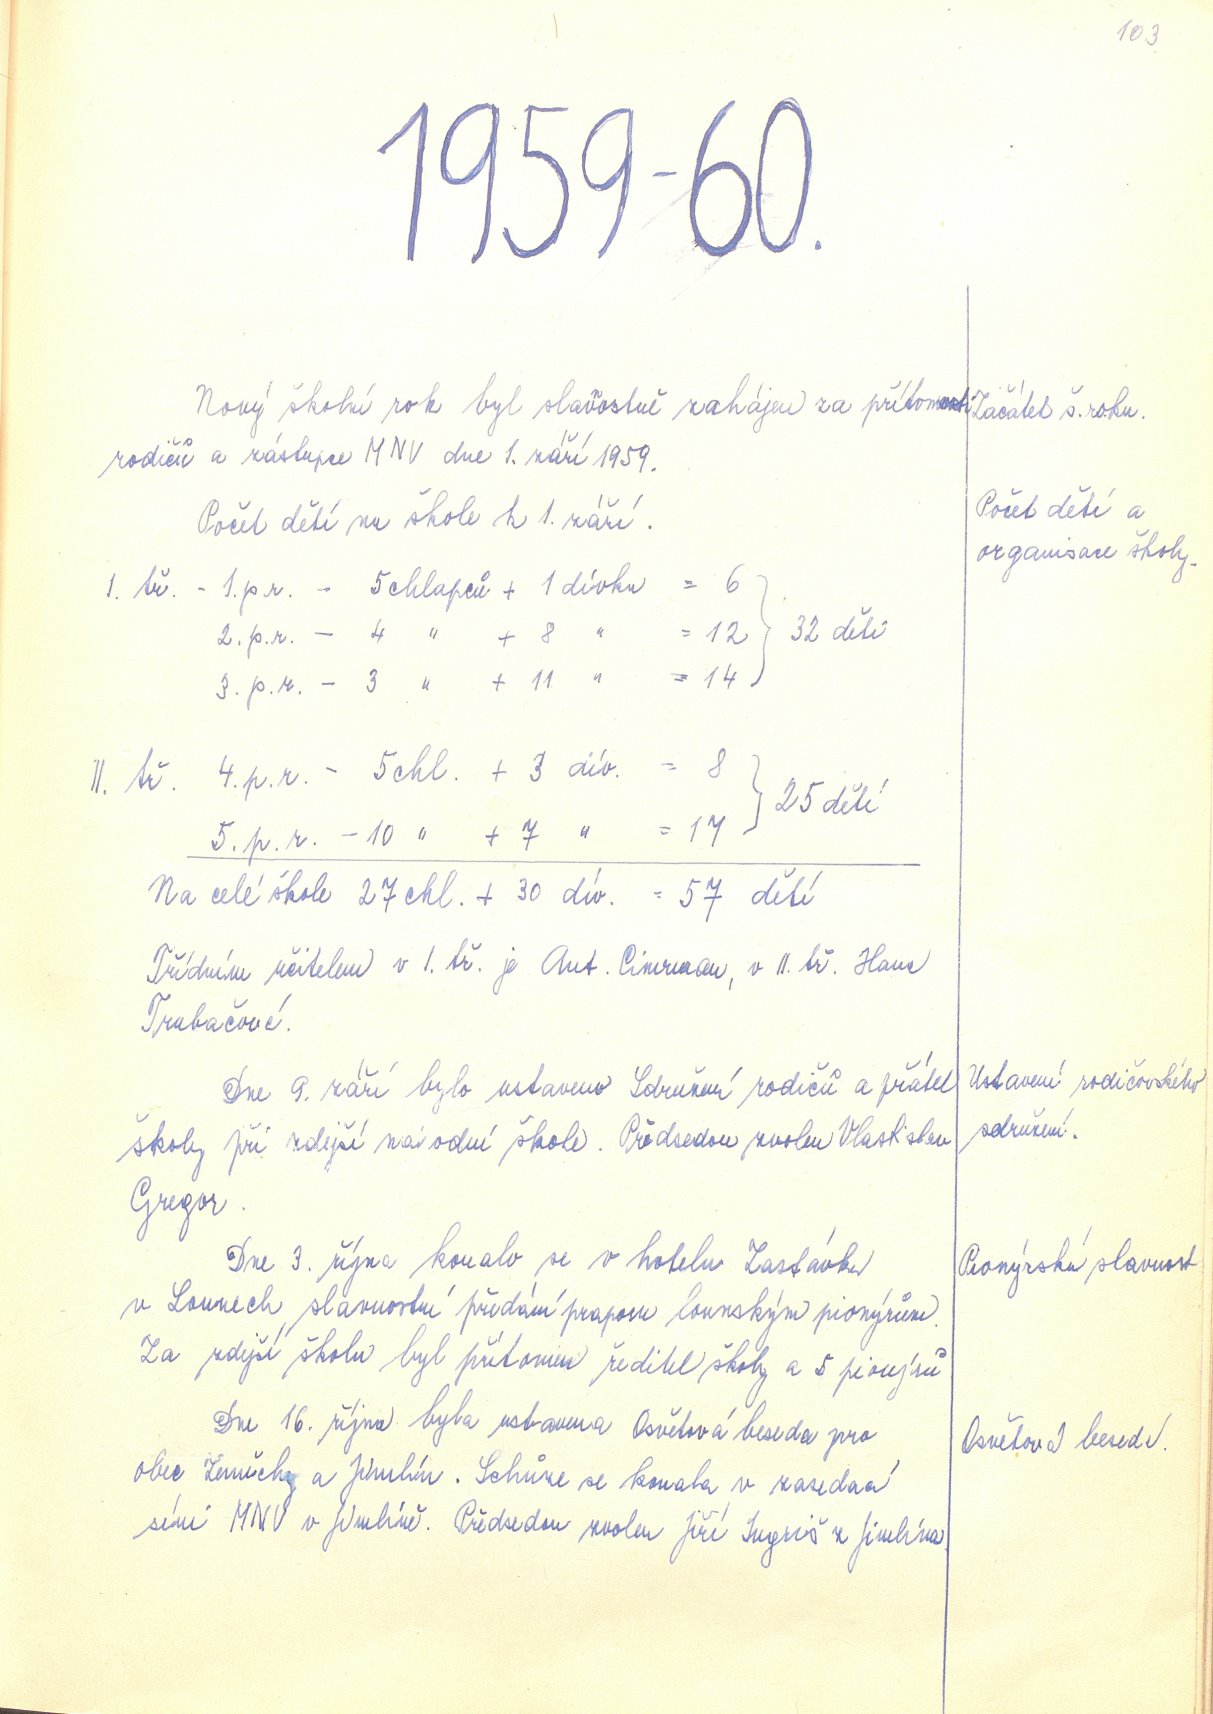 103
1959-60.
Nový školní rok byl slavnostně zahájen za přítomnosti
Začátek š. roku.
rodičů a zástupce MNV dne 1. září 1959.
Počet dětí na škole k 1. září.
Počet dětí a
organisace školy.
I. tř. - 1. p. r. - 5 chlapců + 1 dívka = 6
2. p. r. - 4 " + 8 " = 12 32 dětí
3. p. r. - 3 " + 11 " = 14
II. tř. 4. p. r. - 5 chl. + 3 dív. = 8
25 dětí
5. p. r. - 10 " + 7 " = 17
Na celé škole 27 chl. + 30 dív. = 57 dětí
Třídním učitelem v I. tř. je Ant. Cimrman, v II. tř. Hana
Trubačová.
Dne 9. září bylo ustaveno Sdružení rodičů a přátel
Ustavení rodičovského
školy při zdejší národní škole. Předsedou zvolen Vlastislav
sdružení.
Gregor.
Dne 3. října konalo se v hotelu Zastávka
Pionýrská slavnost
v Lounech slavnostní předání praporu lounským pionýrům.
Za zdejší školu byl přítomen ředitel školy a 5 pionýrů
Dne 16. října byla ustavena Osvětová beseda pro
Osvětová beseda.
obec Zeměchy a Jimlín. Schůze se konala v zasedací
síni MNV v Jimlíně. Předsedou zvolen Jiří Ingriš z Jimlína.